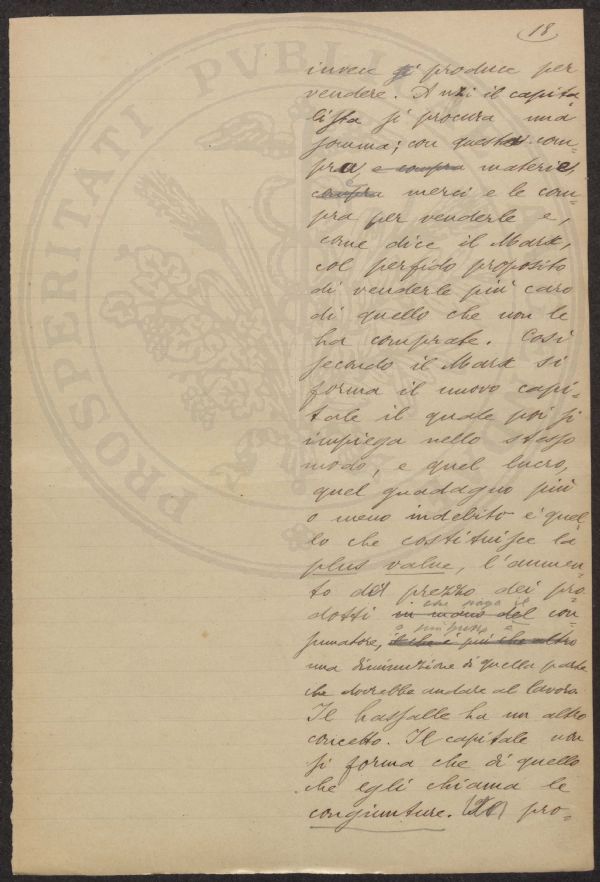 18
invece si produce per
vendere. Anzi il capita-
lista si procura una
somma; con questa com-
pra, e compra materie,
compra merci e le com-
pra per venderle e,
come dice il Marx,
col perfido proposito
di venderle più caro
di quello che non le
ha comprate. Così
secondo il Marx si
forma il nuovo capi-
tale il quale poi si
impiega nello stesso
modo, e quel lucro,
quel guadagno più
o meno indebito è quel-
lo che costituisce la
plus value, l'aumen-
to del prezzo dei pro-
che paga il
dotti in mano del con-
o piuttosto è
sumatore, il che è più che altro
una diminuzione di quella parte
che dovrebbe andare al lavoro.
Il Lassalle ha un altro
concetto. Il capitale non
si forma che di quello
che egli chiama le
congiunture. pro-
PROSPERITATI PVBLI